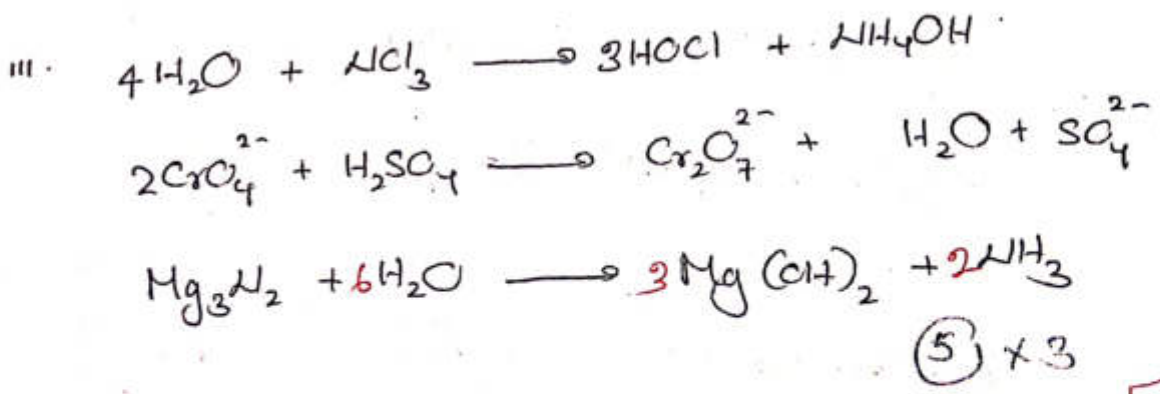 III. 4H₂O + NCl₃ ⟶ 3HOCl + NH₄OH
2CrO₄²⁻ + H₂SO₄ ⟶ Cr₂O₇²⁻ + H₂O + SO₄²⁻
Mg₃N₂ + 6H₂O ⟶ 3Mg(OH)₂ + 2NH₃
⑤ × 3